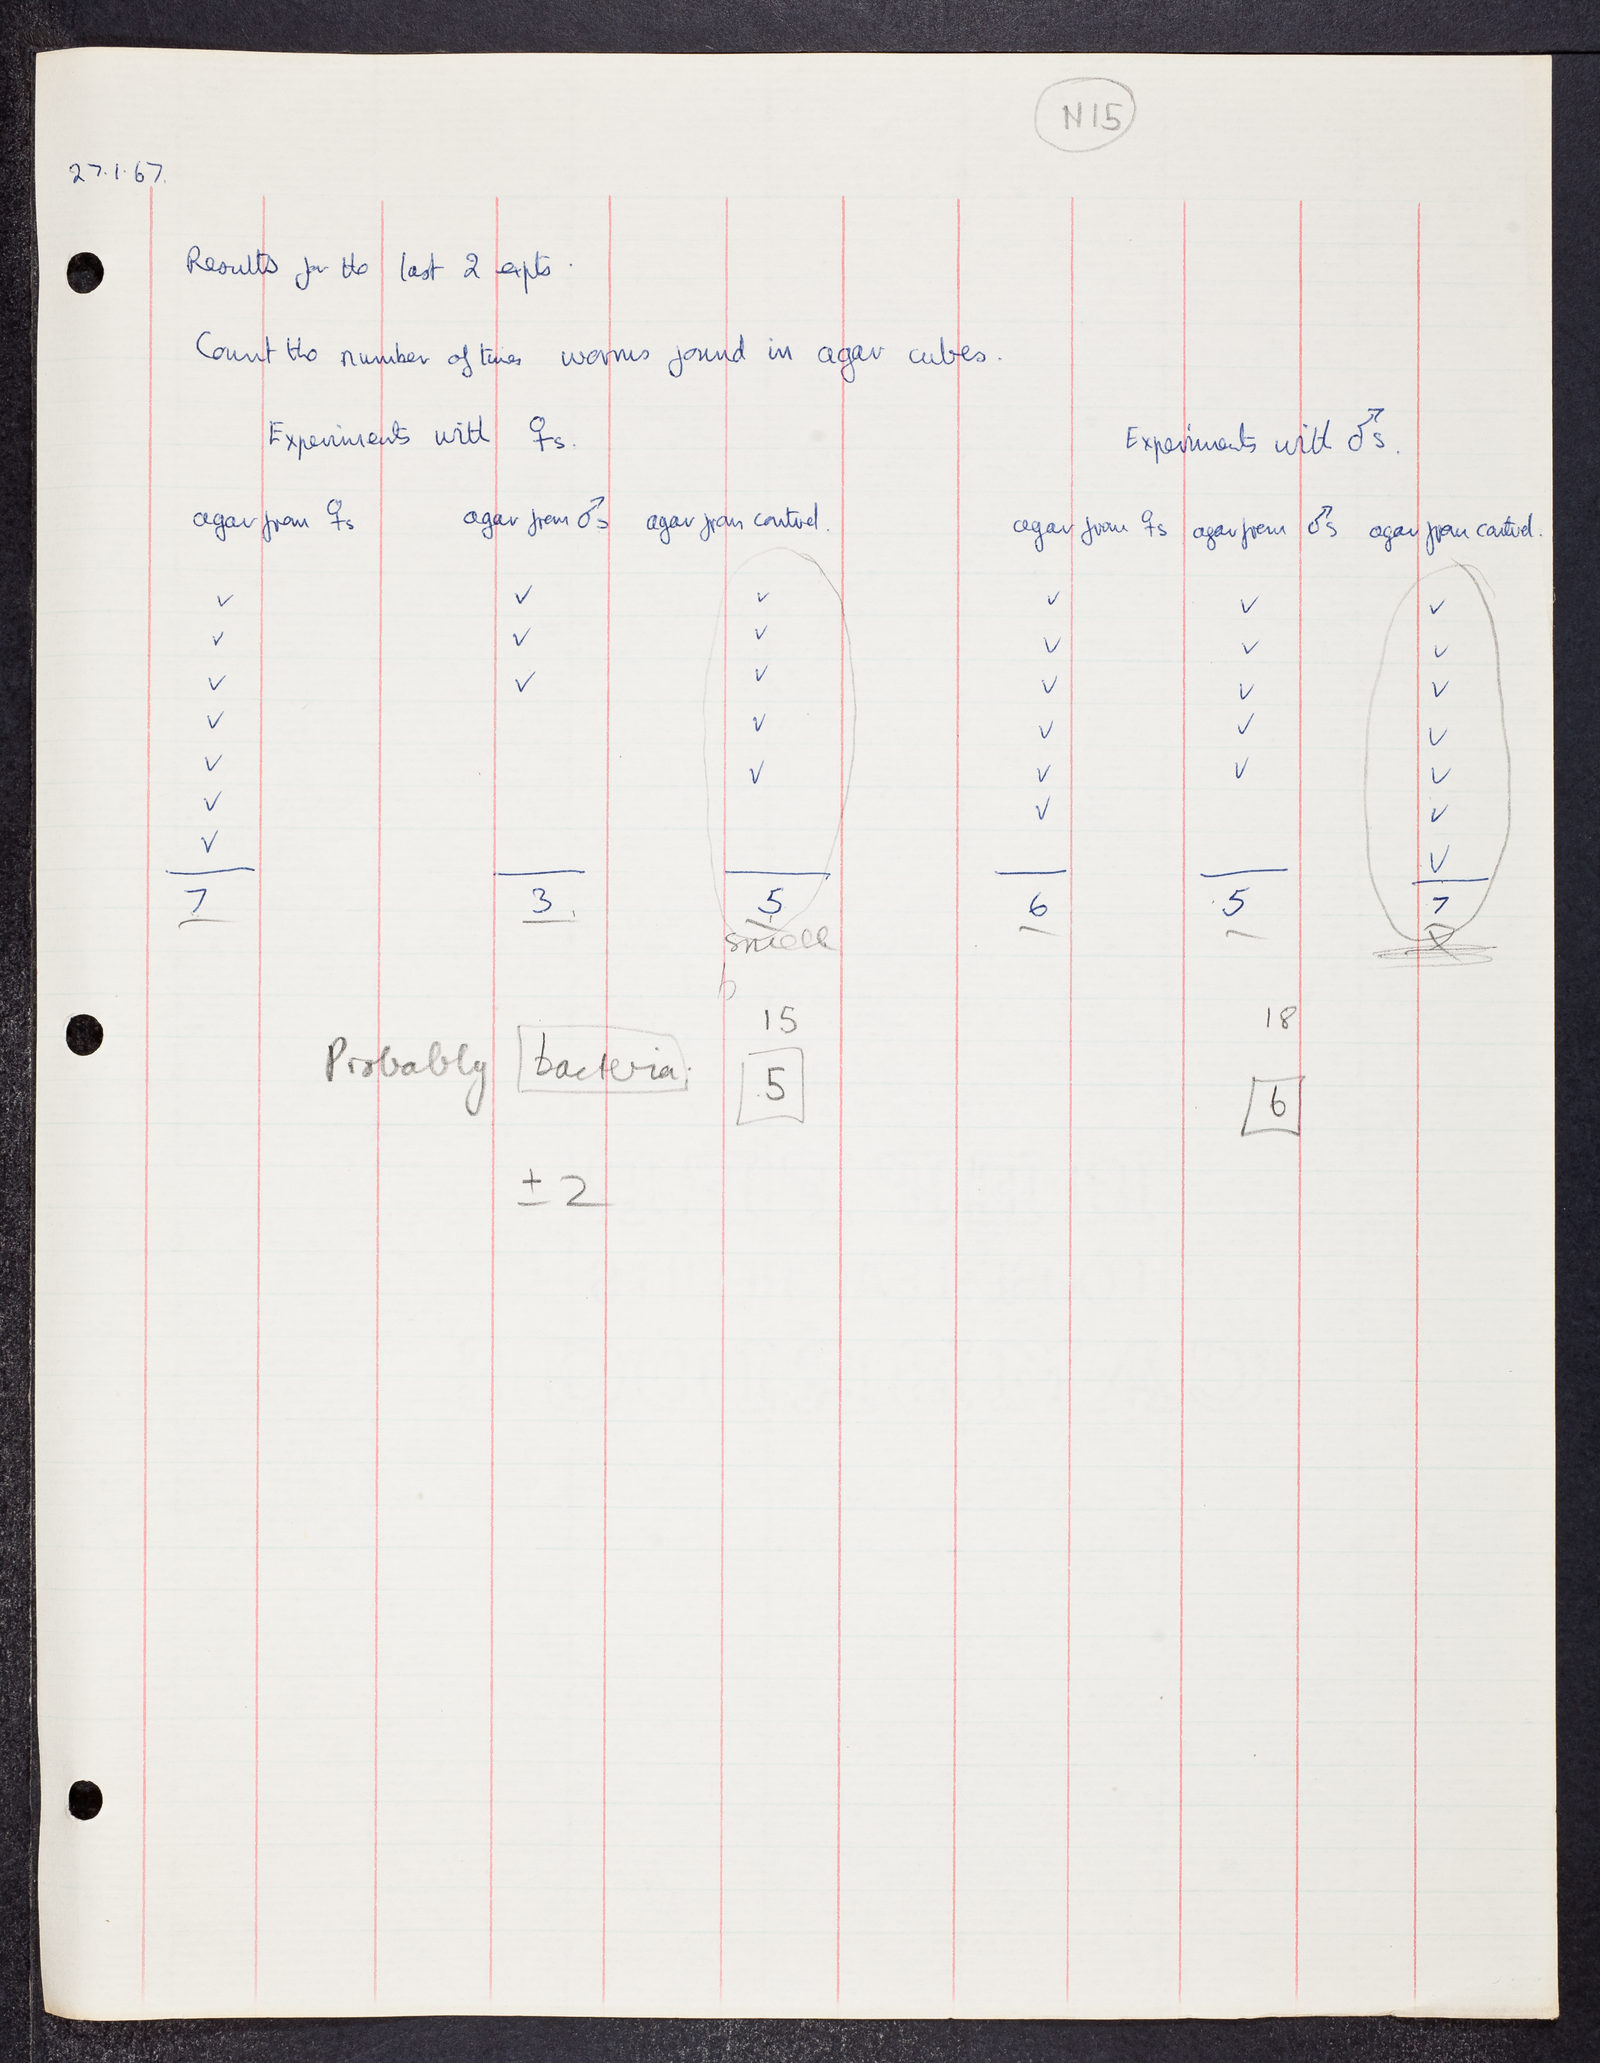 N15
27.1.67.
Results for the last 2 expts.
Count the number of times worms found in agar cubes.
Experiments with ♀s. Experiments with ♂s.
agar from ♀s agar from ♂s agar from control. agar from ♀s agar from ♂s agar from control.
✓ ✓ ✓ ✓ ✓ ✓
✓ ✓ ✓ ✓ ✓ ✓
✓ ✓ ✓ ✓ ✓ ✓
✓ ✓ ✓ ✓ ✓
✓ ✓ ✓ ✓ ✓
✓ ✓ ✓
✓ ✓
7 3 5 6 5 7
smell
b
15 18
Probably bacteria. 5 6
± 2